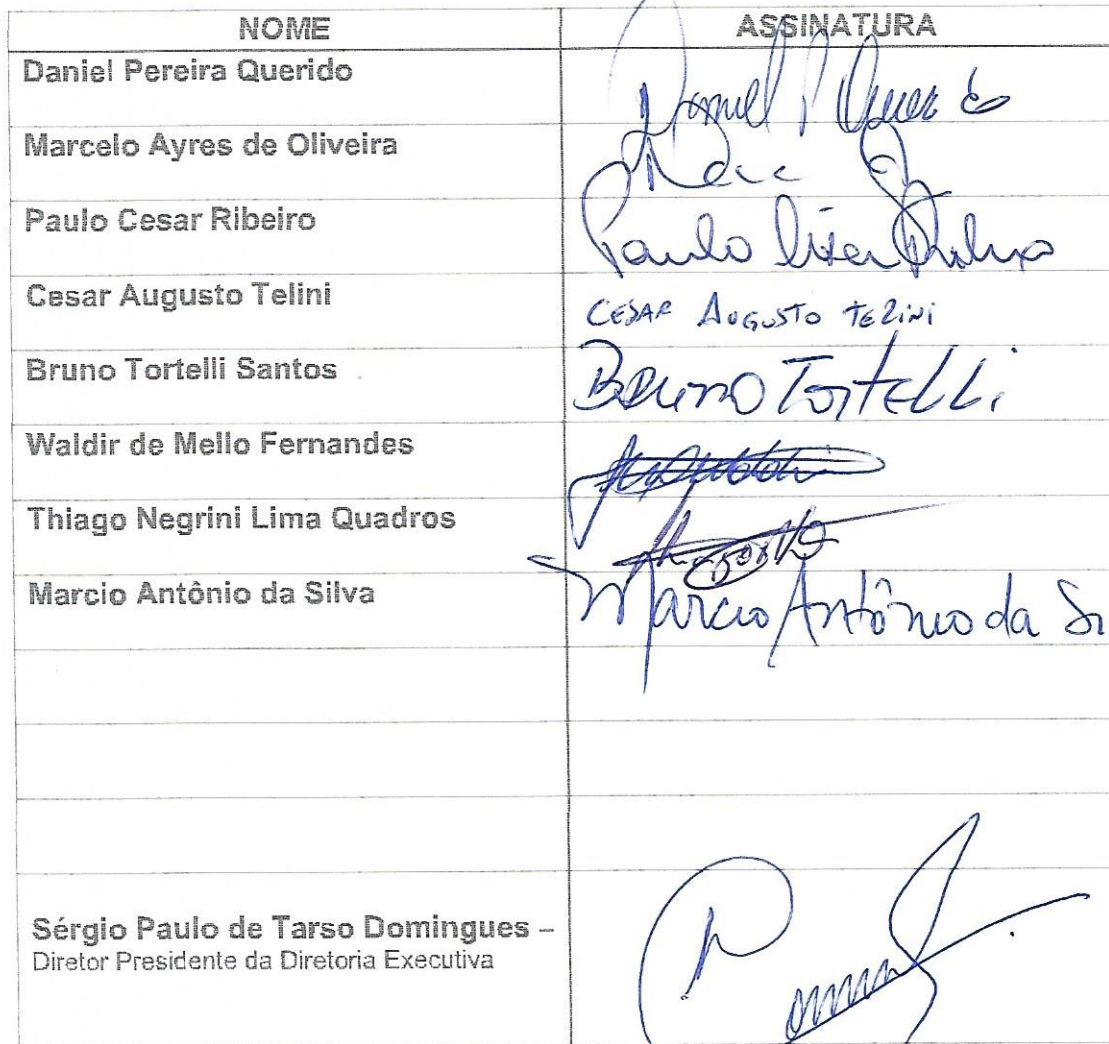 NOME ASSINATURA
Daniel Pereira Querido Daniel P Querido
Marcelo Ayres de Oliveira
Paulo Cesar Ribeiro Paulo Cesar Ribeiro
Cesar Augusto Telini CESAR AUGUSTO TELINI
Bruno Tortelli Santos BRUNO TORTELLI
Waldir de Mello Fernandes
Thiago Negrini Lima Quadros
Marcio Antônio da Silva Marcio Antônio da Si
Sérgio Paulo de Tarso Domingues –
Diretor Presidente da Diretoria Executiva